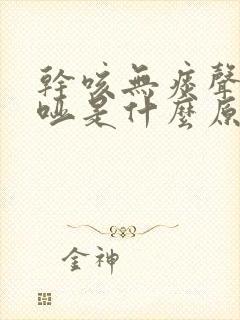 幹咳無痰聲
啞是什麼原
金神